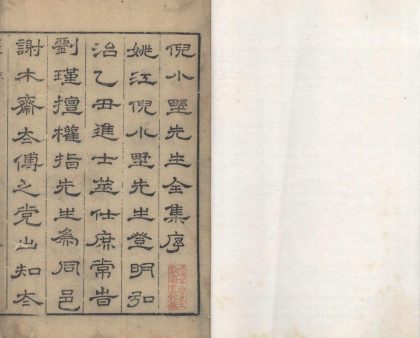 倪小野先生全集序
姚江倪小野先生登明弘
治乙丑進士筮仕庶常時
劉瑾擅權指先生為同邑
謝木齋太傅之党出知太